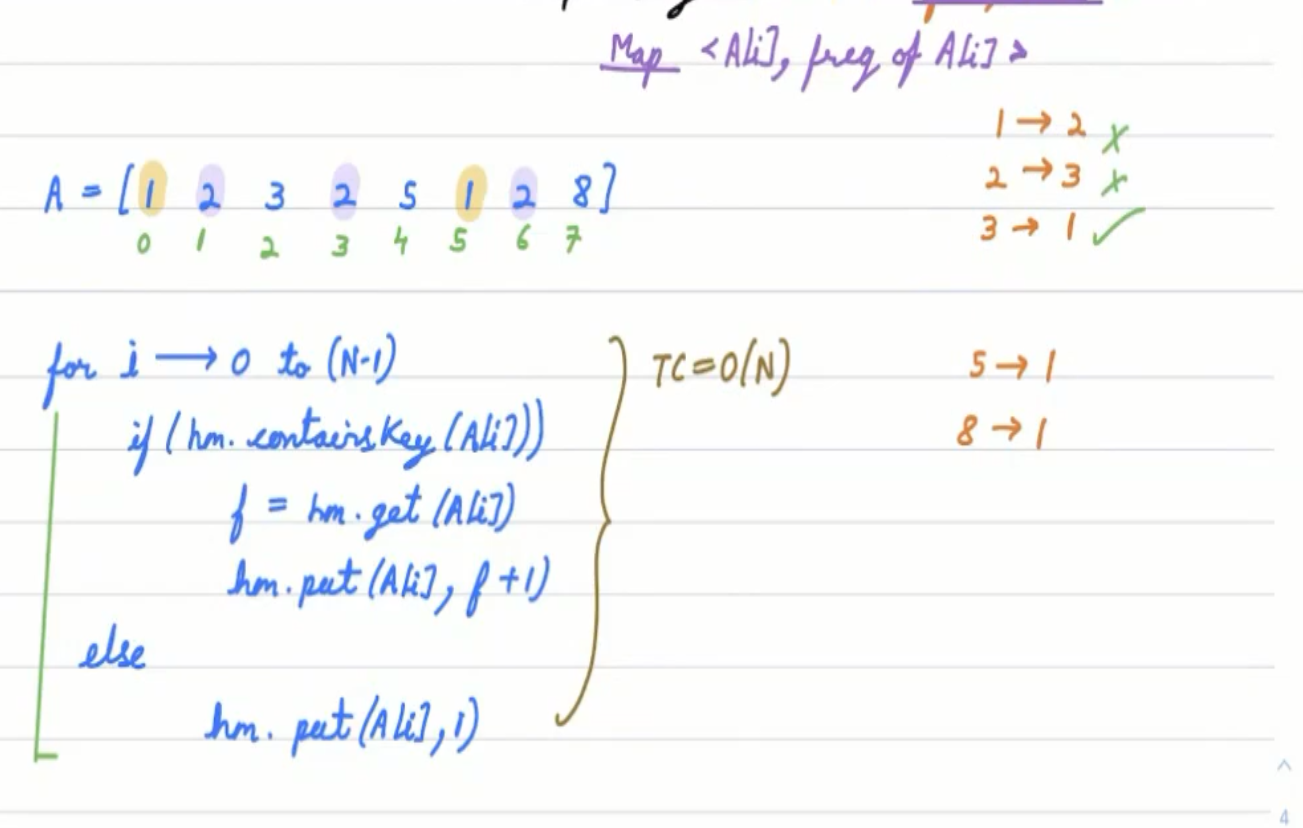 Map <A[i], freq of A[i]>
1 → 2 ✗
2 → 3 ✗
3 → 1 ✓
A = [1 2 3 2 5 1 2 8]
0 1 2 3 4 5 6 7
for i → 0 to (N-1)
TC = O(N)
5 → 1
if (hm. contains Key (A[i]))
8 → 1
f = hm. get (A[i])
hm. put (A[i], f +1)
else
hm. put (A[i], 1)
4